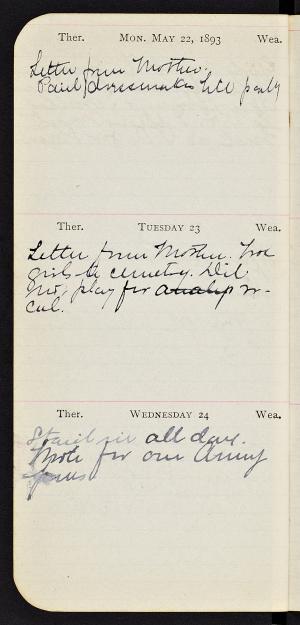 Ther. MON. MAY 22, 1893 Wea.
Letter from Mother.
Paid dressmaker little party
Ther. TUESDAY 23 Wea.
Letter from Mother. Took
girls to cemetery. Did
not play for
Ther. WEDNESDAY 24 Wea.
all day.
Wrote for our Army